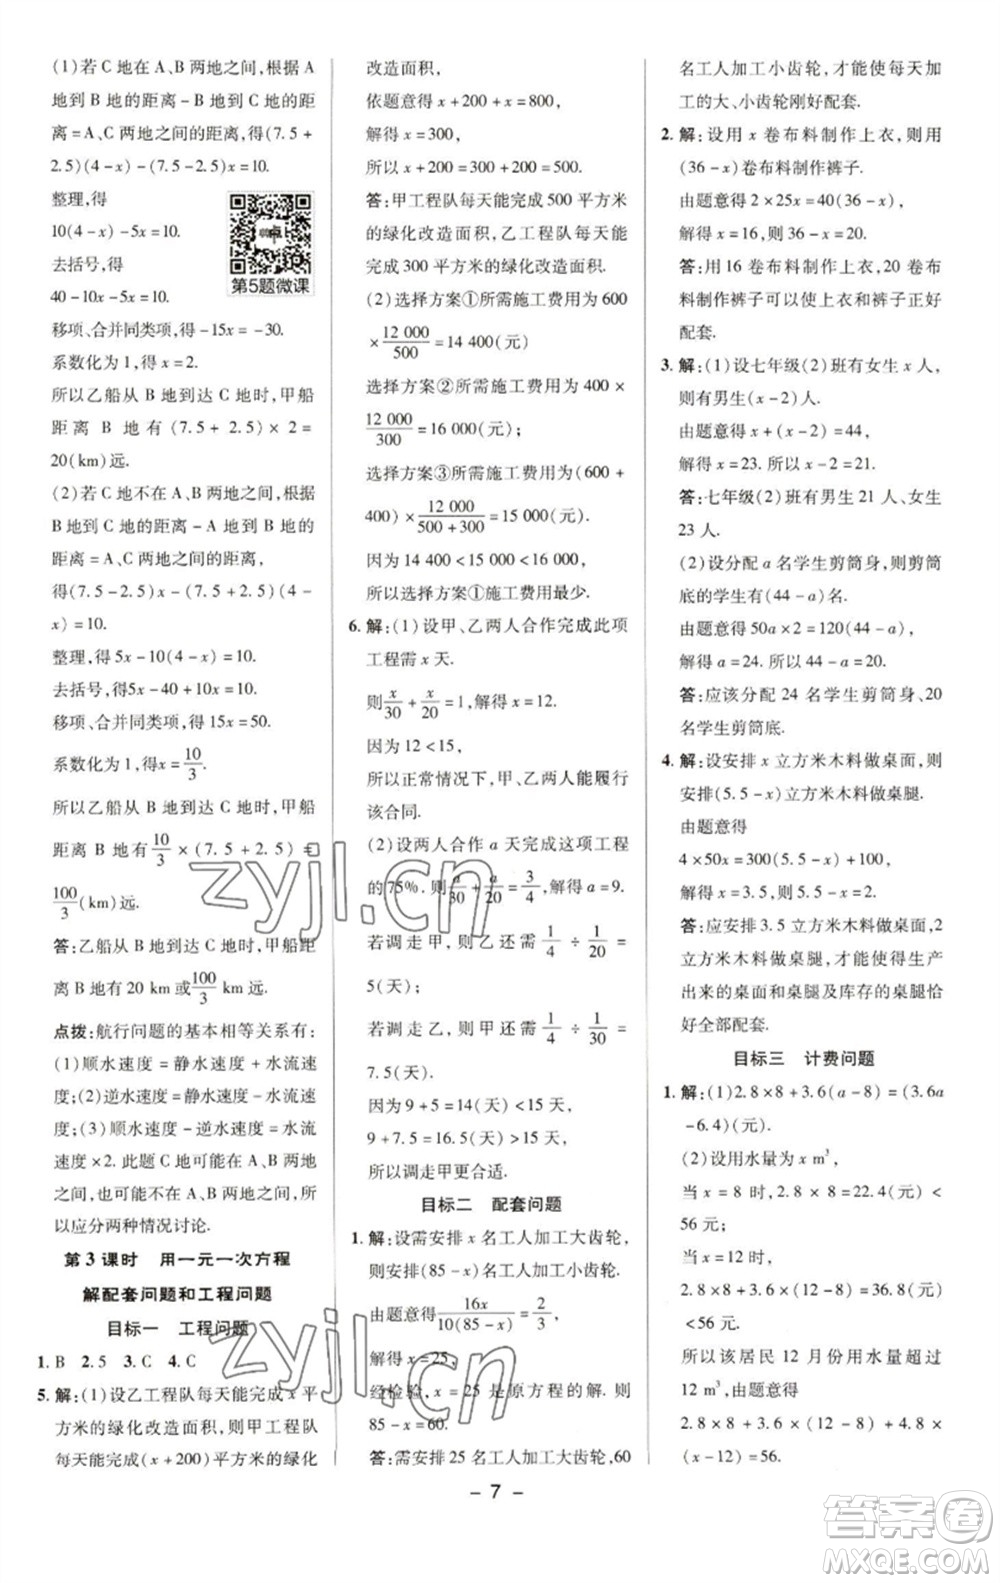 (1)若 C 地在 A、B 两地之间,根据 A
地到 B 地的距离 - B 地到 C 地的距
离 = A、C 两地之间的距离,得(7. 5 +
2. 5)(4 - x) - (7. 5 - 2. 5)x = 10.
整理,得
10(4 - x) - 5x = 10.
去括号,得
40 - 10x - 5x = 10.
第5题微课
移项、合并同类项,得 - 15x = - 30.
系数化为 1,得 x = 2.
所以乙船从 B 地到达 C 地时,甲船
距离 B 地有 (7. 5 + 2. 5) × 2 =
20(km)远.
(2)若 C 地不在 A、B 两地之间,根据
B 地到 C 地的距离 - A 地到 B 地的
距离 = A、C 两地之间的距离,
得(7. 5 - 2. 5)x - (7. 5 + 2. 5)(4 -
x) = 10.
整理,得 5x - 10(4 - x) = 10.
去括号,得5x - 40 + 10x = 10.
移项、合并同类项,得 15x = 50.
系数化为 1,得 x = 10/3.
所以乙船从 B 地到达 C 地时,甲船
距离 B 地有 10/3 × (7. 5 + 2. 5) =
100/3(km)远.
答:乙船从 B 地到达 C 地时,甲船距
离 B 地有 20 km 或 100/3 km 远.
点拨:航行问题的基本相等关系有:
(1)顺水速度 = 静水速度 + 水流速
度;(2)逆水速度 = 静水速度 - 水流
速度;(3)顺水速度 - 逆水速度 = 水流
速度 × 2. 此题 C 地可能在 A、B 两地
之间,也可能不在 A、B 两地之间,所
以应分两种情况讨论.
第 3 课时 用一元一次方程
解配套问题和工程问题
目标一 工程问题
1. B 2. 5 3. C 4. C
5. 解:(1)设乙工程队每天能完成 x 平
方米的绿化改造面积,则甲工程队
每天能完成(x + 200)平方米的绿化
改造面积,
依题意得 x + 200 + x = 800,
解得 x = 300,
所以 x + 200 = 300 + 200 = 500.
答:甲工程队每天能完成 500 平方米
的绿化改造面积,乙工程队每天能
完成 300 平方米的绿化改造面积.
(2)选择方案①所需施工费用为 600
× 12 000/500 = 14 400(元);
选择方案②所需施工费用为 400 ×
12 000/300 = 16 000(元);
选择方案③所需施工费用为(600 +
400) × 12 000/(500 + 300) = 15 000(元).
因为 14 400 < 15 000 < 16 000,
所以选择方案①施工费用最少.
6. 解:(1)设甲、乙两人合作完成此项
工程需 x 天.
则 x/30 + x/20 = 1,解得 x = 12.
因为 12 < 15,
所以正常情况下,甲、乙两人能履行
该合同.
(2)设两人合作 a 天完成这项工程
的 75%. 则 a/30 + a/20 = 3/4,解得 a = 9.
若调走甲,则乙还需 1/4 ÷ 1/20 =
5(天);
若调走乙,则甲还需 1/4 ÷ 1/30 =
7. 5(天).
因为 9 + 5 = 14(天) < 15 天,
9 + 7. 5 = 16. 5(天) > 15 天,
所以调走甲更合适.
目标二 配套问题
1. 解:设需安排 x 名工人加工大齿轮,
则安排(85 - x)名工人加工小齿轮.
由题意得 16x/10(85 - x) = 2/3,
解得 x = 25,
经检验,x = 25 是原方程的解. 则
85 - x = 60.
答:需安排 25 名工人加工大齿轮,60
名工人加工小齿轮,才能使每天加
工的大、小齿轮刚好配套.
2. 解:设用 x 卷布料制作上衣,则用
(36 - x)卷布料制作裤子.
由题意得 2 × 25x = 40(36 - x),
解得 x = 16,则 36 - x = 20.
答:用 16 卷布料制作上衣,20 卷布
料制作裤子可以使上衣和裤子正好
配套.
3. 解:(1)设七年级(2)班有女生 x 人,
则有男生(x - 2)人.
由题意得 x + (x - 2) = 44,
解得 x = 23. 所以 x - 2 = 21.
答:七年级(2)班有男生 21 人、女生
23 人.
(2)设分配 a 名学生剪筒身,则剪筒
底的学生有(44 - a)名.
由题意得 50a × 2 = 120(44 - a),
解得 a = 24. 所以 44 - a = 20.
答:应该分配 24 名学生剪筒身、20
名学生剪筒底.
4. 解:设安排 x 立方米木料做桌面,则
安排(5. 5 - x)立方米木料做桌腿.
由题意得
4 × 50x = 300(5. 5 - x) + 100.
解得 x = 3. 5,则 5. 5 - x = 2.
答:应安排 3. 5 立方米木料做桌面,2
立方米木料做桌腿,能使得生产
出来的桌面和桌腿及库存的桌腿恰
好全部配套.
目标三 计费问题
1. 解:(1)2. 8 × 8 + 3. 6(a - 8) = (3. 6a
- 6. 4)(元).
(2)设用水量为 x m³,
当 x = 8 时,2. 8 × 8 = 22. 4(元) <
56 元;
当 x = 12 时,
2. 8 × 8 + 3. 6 × (12 - 8) = 36. 8(元)
< 56 元.
所以该居民 12 月份用水量超过
12 m³,根据题意得
2. 8 × 8 + 3. 6 × (12 - 8) + 4. 8 ×
(x - 12) = 56.
- 7 -
zyjl.cn
zyjl.cn
答案圈
MXQE.COM